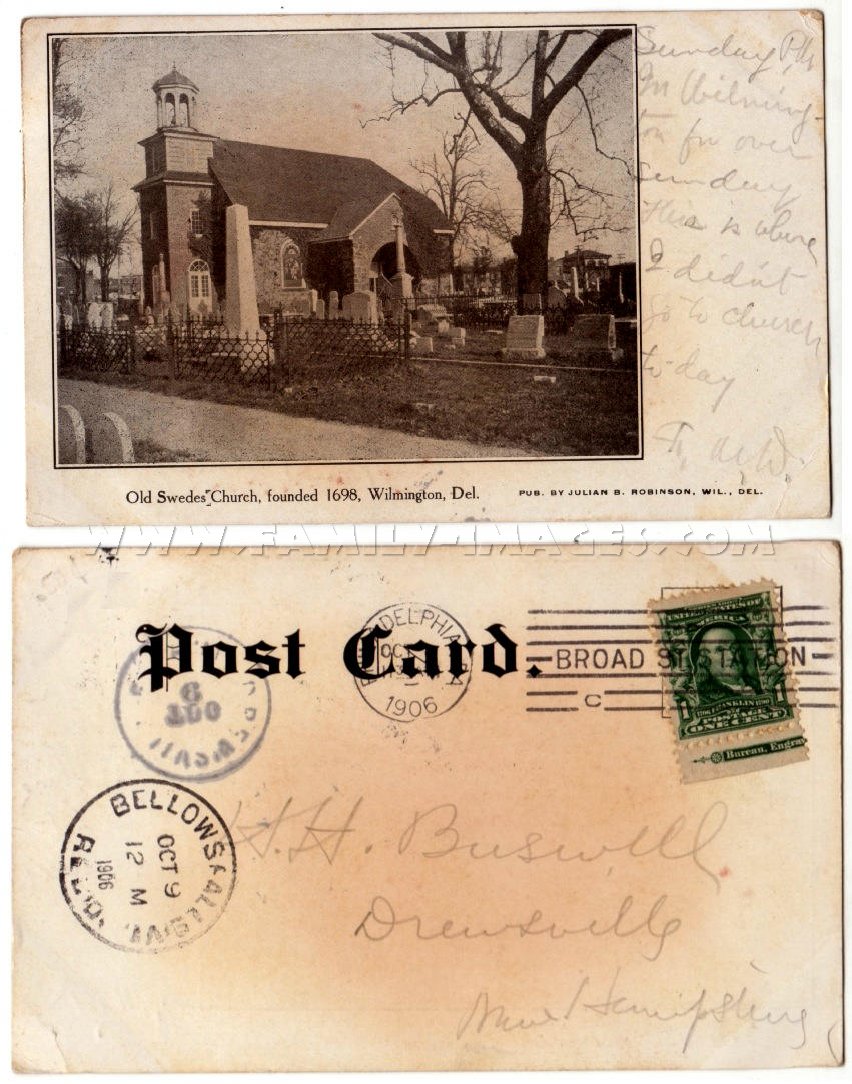 Sunday P.M.
In Wilming-
ton for over
Sunday
This is where
I didn't
go to church
to-day
W.
Old Swedes' Church, founded 1698, Wilmington, Del.
PUB. BY JULIAN B. ROBINSON, WIL., DEL.
WWW.FAMILY-IMAGES.COM
Post Card.
PHILADELPHIA
OCT
1906
BROAD ST. STATION
C
UNITED STATES OF
AMERICA
1706 FRANKLIN 1790
POSTAGE
1 ONE CENT 1
Bureau, Engrav
9
OCT
BELLOWS FALLS VT.
OCT 9
12 M
1906
REC'D.
H. H. Buswell
Drewsville
New Hampshire